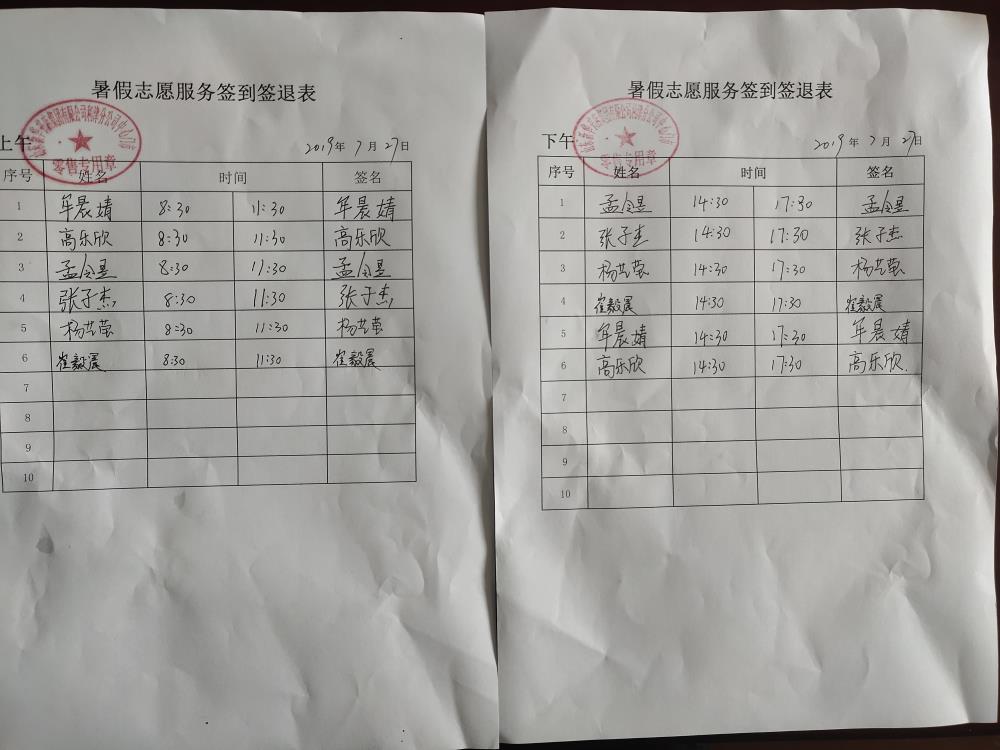 暑假志愿服务签到签退表
上午
2019年 7月 27日
序号 姓名 时间 签名
1 牟晨婧 8:30 11:30 牟晨婧
2 高乐欣 8:30 11:30 高乐欣
3 孟令昱 8:30 11:30 孟令昱
4 张子杰 8:30 11:30 张子杰
5 杨芸萤 8:30 11:30 杨芸萤
6 崔毅晨 8:30 11:30 崔毅晨
7
8
9
10
客售专用章
暑假志愿服务签到签退表
下午
2019年 7月 27日
序号 姓名 时间 签名
1 孟令昱 14:30 17:30 孟令昱
2 张子杰 14:30 17:30 张子杰
3 杨芸萤 14:30 17:30 杨芸萤
4 崔毅晨 14:30 17:30 崔毅晨
5 牟晨婧 14:30 17:30 牟晨婧
6 高乐欣 14:30 17:30 高乐欣
7
8
9
10
客售专用章